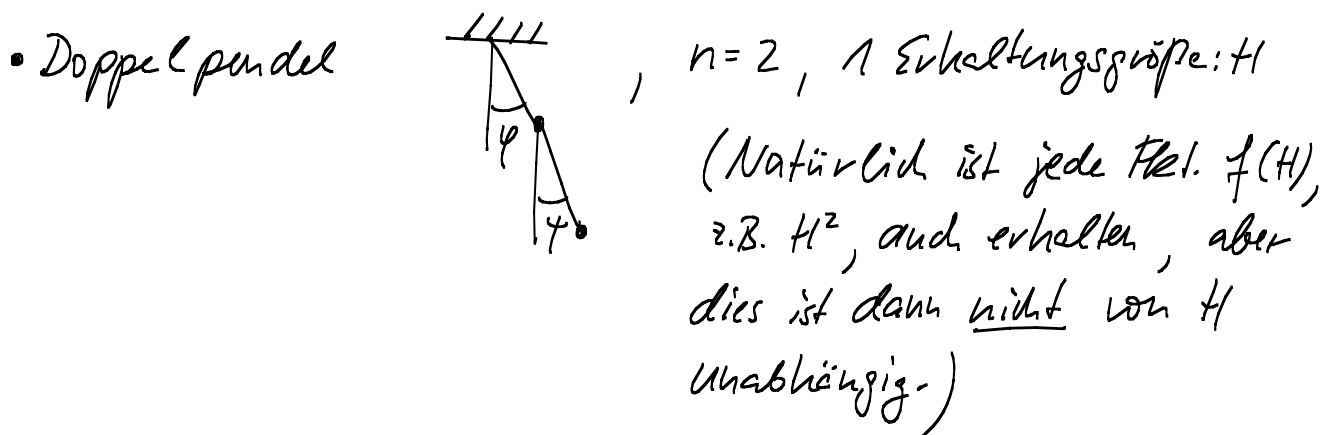 • Doppelpendel
φ
ψ
, n = 2, 1 Erhaltungsgröße: H
(Natürlich ist jede Fkt. f(H),
z.B. H², auch erhalten, aber
dies ist dann nicht von H
unabhängig.)